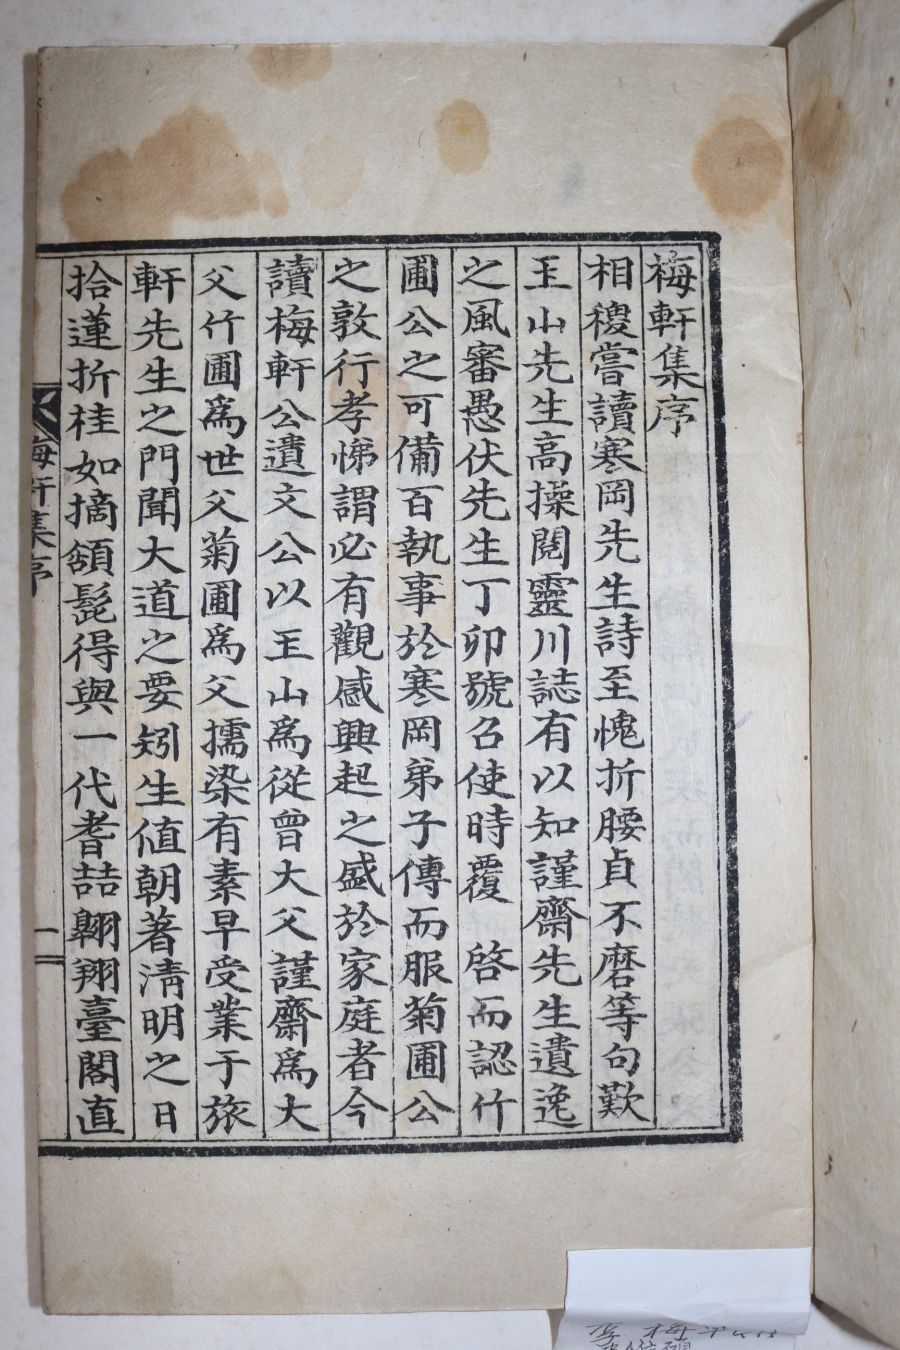 梅軒集序
相稷嘗讀寒岡先生詩至愧折腰貞不磨等句歎
王山先生高操閱靈川誌有以知謹齋先生遺逸
之風審愚伏先生丁卯號召使時覆 啓而認竹
圃公之可備百執事於寒岡弟子傳而服菊圃公
之敦行孝悌謂必有觀感興起之盛於家庭者今
讀梅軒公遺文公以王山爲從曾大父謹齋爲大
父竹圃爲世父菊圃爲父擩染有素早受業于旅
軒先生之門聞大道之要矧生値朝著淸明之日
拾蓮折桂如摘頷髭得與一代耆喆翺翔臺閣直
梅軒集序
一
梅